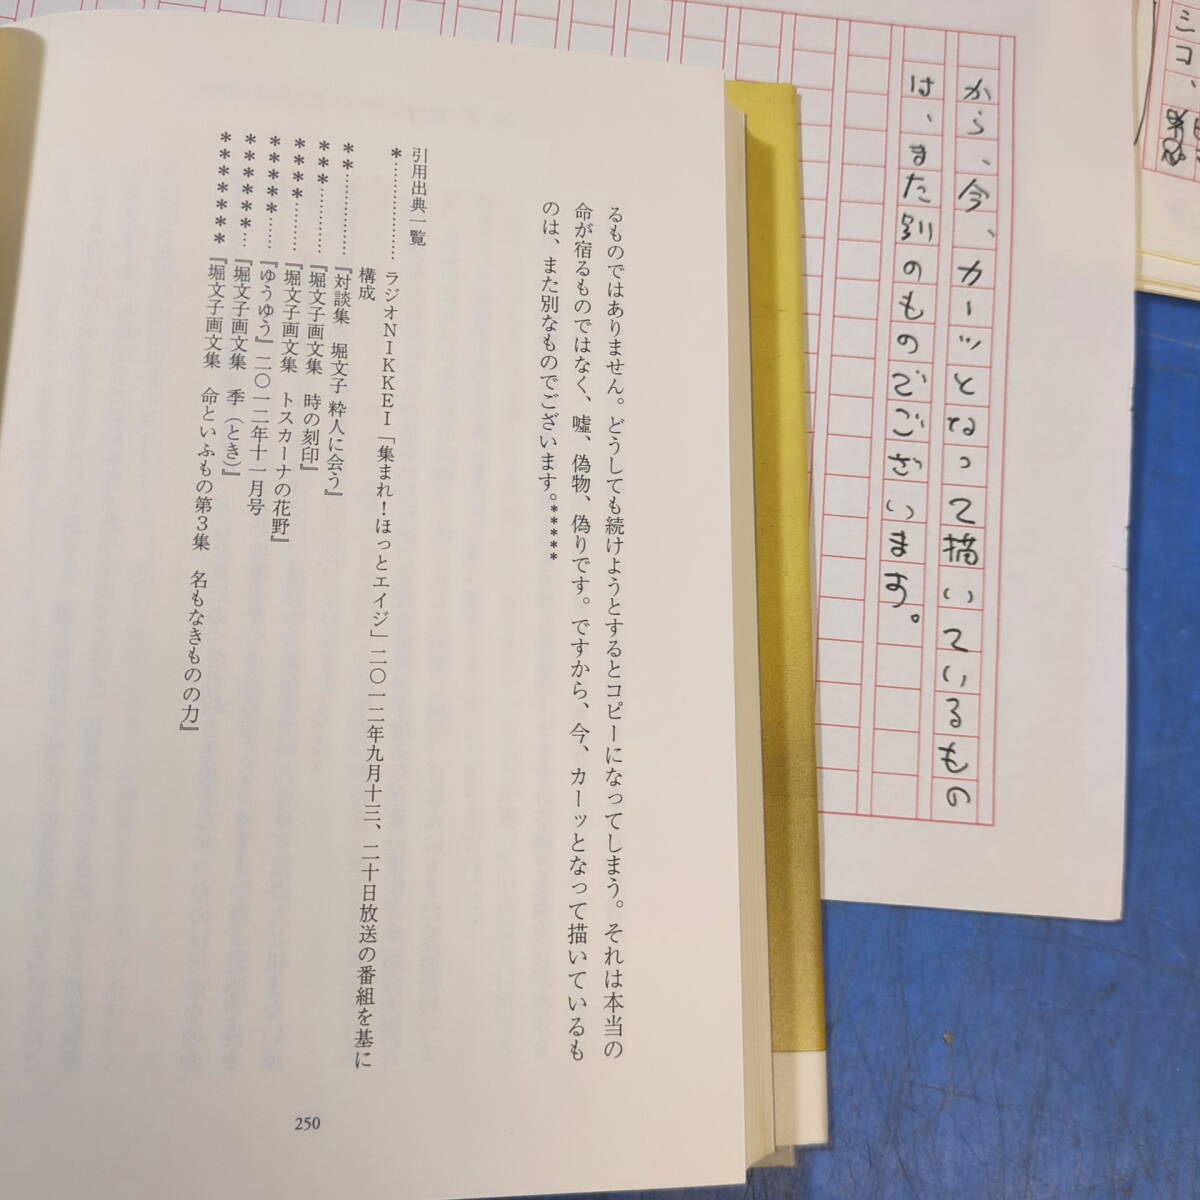 ミコ、
から、今、カーッとなって描いているもの
は、また別のものでございます。
るものではありません。どうしても続けようとするとコピーになってしまう。それは本当の
命が宿るものではなく、嘘、偽物、偽りです。ですから、今、カーッとなって描いているも
のは、また別なものでございます。*****
引用出典一覧
*………………ラジオNIKKEI「集まれ!ほっとエイジ」二〇一二年九月十三、二十日放送の番組を基に
構成
**……………『対談集　堀文子 粋人に会う』
***…………『堀文子画文集　時の刻印』
****………『堀文子画文集　トスカーナの花野』
*****……『ゆうゆう』二〇一二年十一月号
******…『堀文子画文集　季(とき)』
*******『堀文子画文集　命といふもの第3集　名もなきものの力』
250